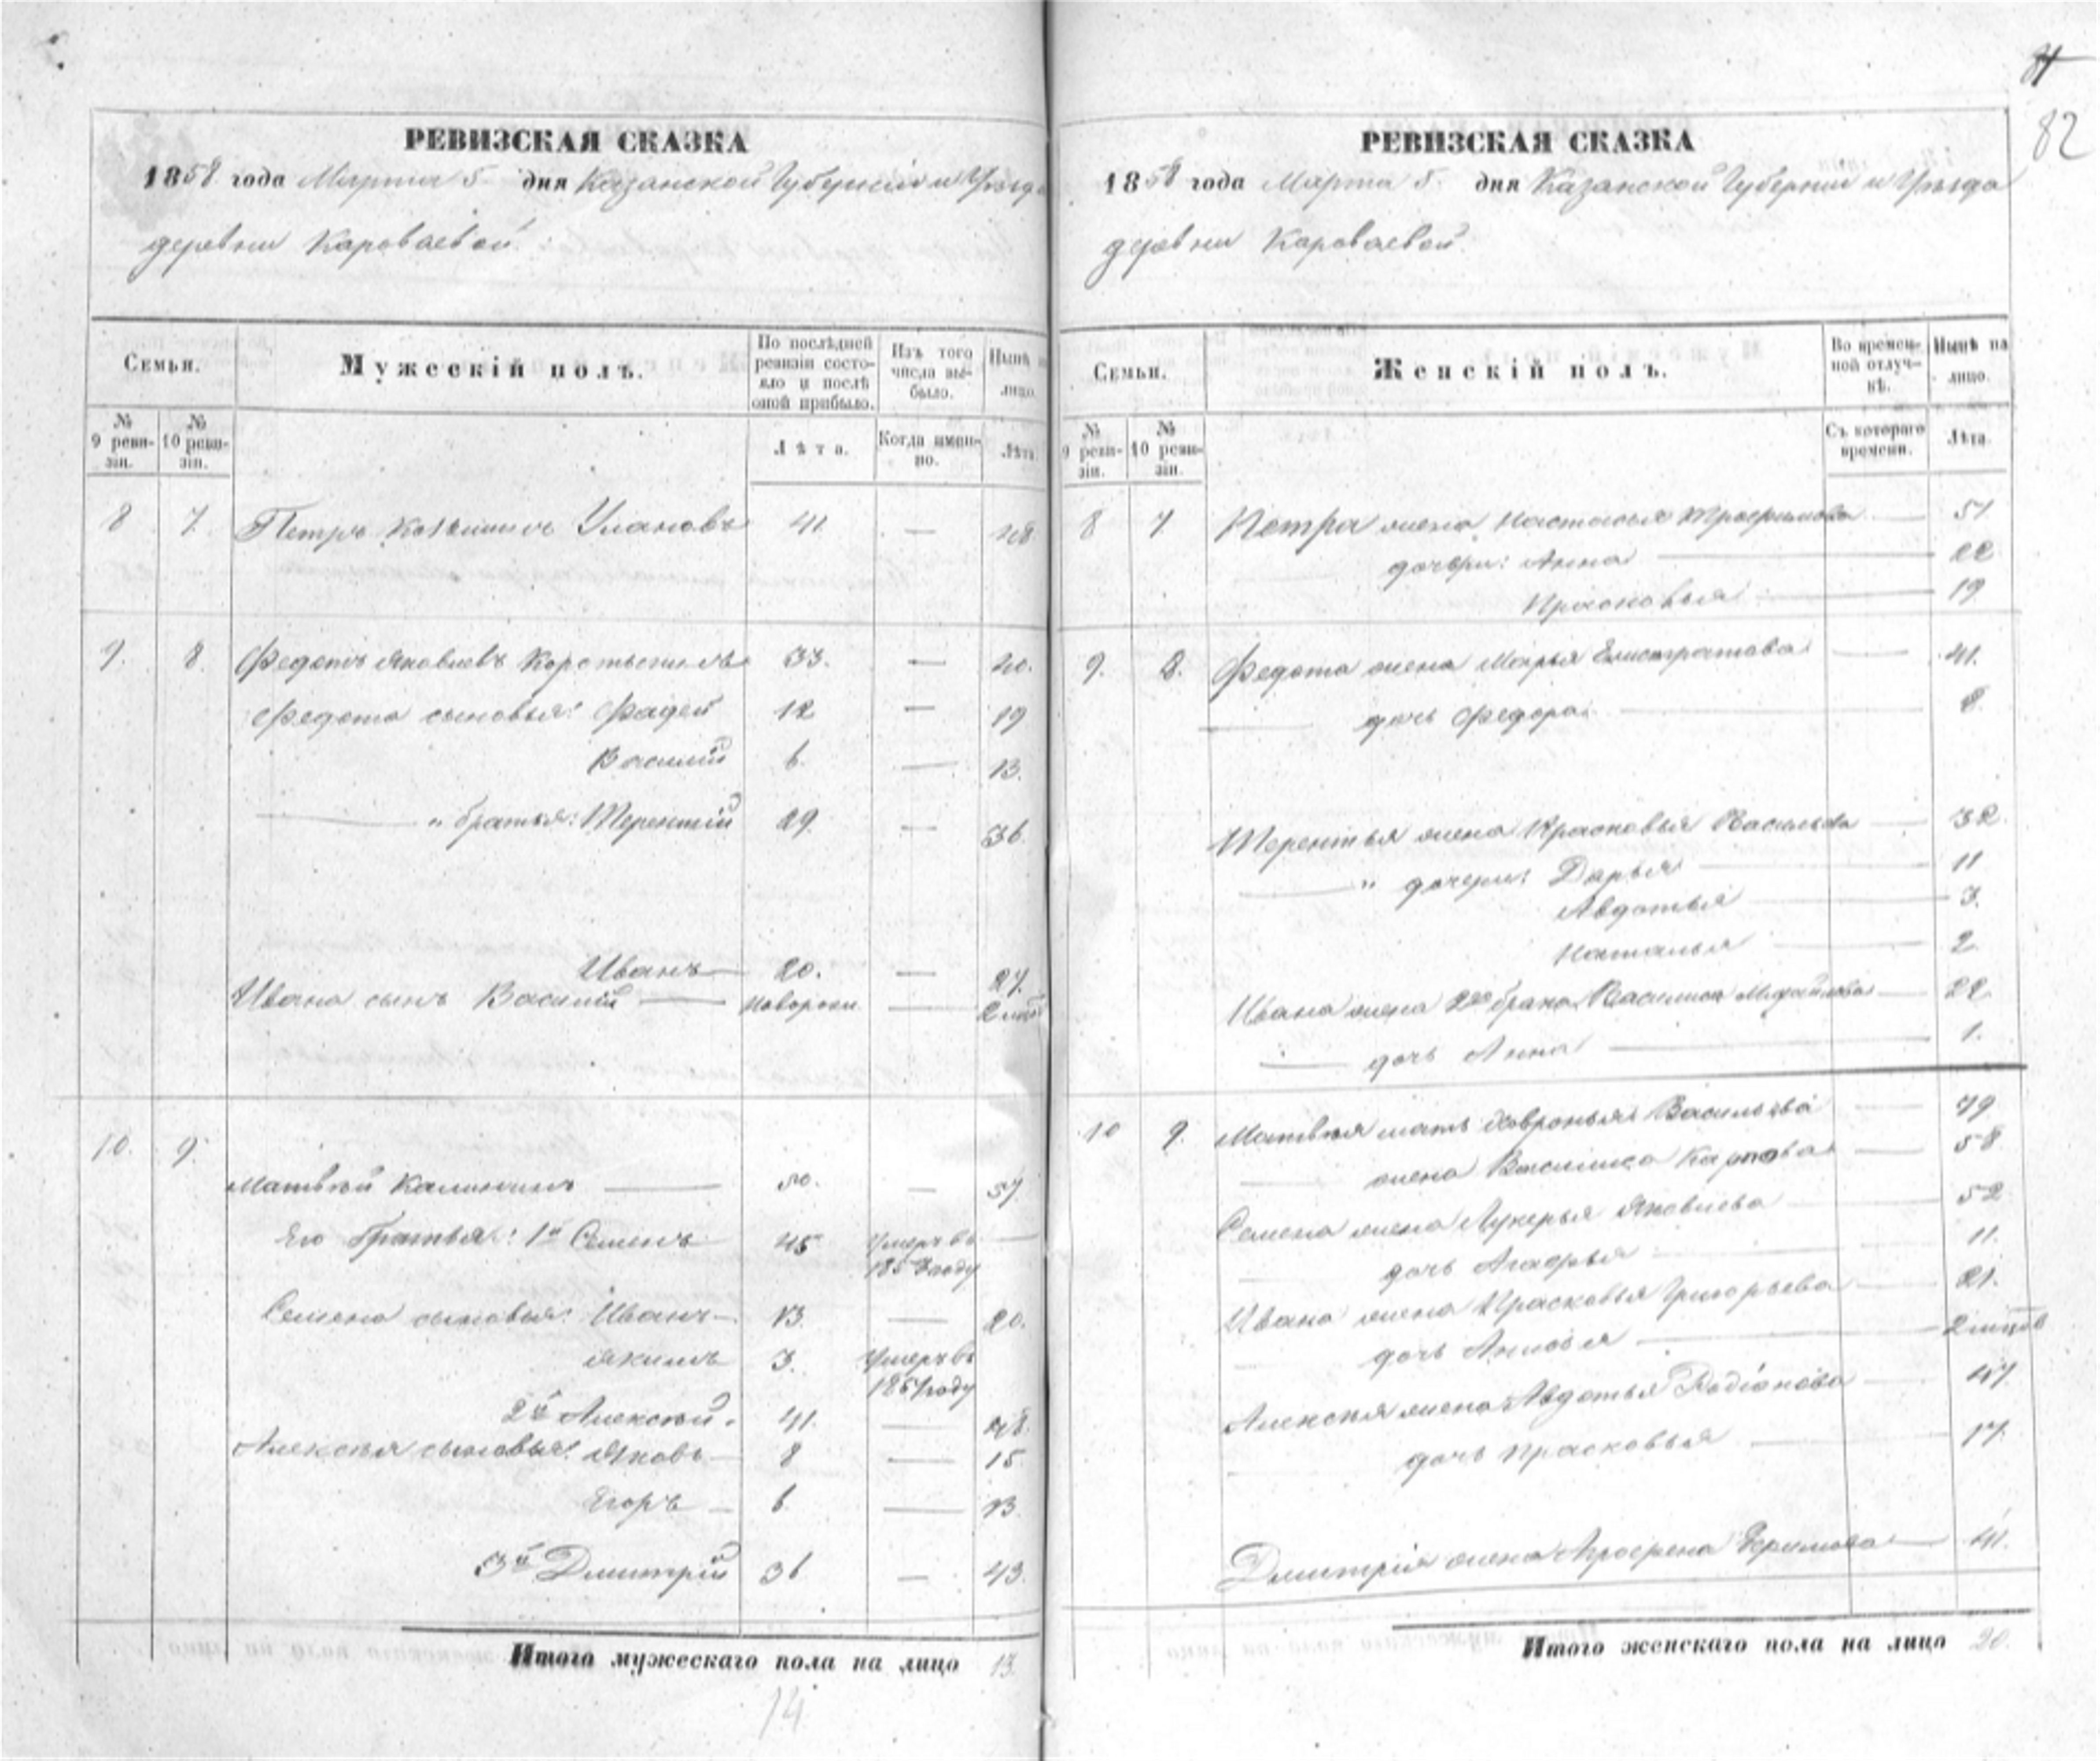 РЕВИЗСКАЯ СКАЗКА
1858 года Марта 5 дня Казанской Губернии и Уѣзда
деревни Караваевой.
Семьи.
Мужескій полъ.
По послѣдней ревизіи состояло и послѣ оной прибыло.
Изъ того числа выбыло.
Нынѣ на лицо.
№ 9 ревизіи.
№ 10 ревизіи.
Лѣта.
Когда именно.
Лѣта.
8 7. Петръ Козьминъ Улановъ 41. — 48.
9. 8. Федотъ Яковлевъ 33. — 40.
Федота сыновья: Фадей 12 — 19
Василій 6. — 13.
" братья: Терентій 29. — 36.
Иванъ — 20. — 27.
Ивана сынъ Василій — новорож. — 2 мѣс
10. 9. Матвѣй Калининъ — 50. — 57
Его братья: 1й Семенъ 45 Умеръ въ —
185 году
Семена сыновья: Иванъ — 13. — 20.
Якимъ 3. Умеръ въ
1857 году
2й Алексѣй. 41. — 48.
Алексѣя сыновья: Яковъ — 8 — 15
Егоръ — 6 — 13.
3й Дмитрій 36 — 43.
Итого мужескаго пола на лицо 13.
14
84
82
РЕВИЗСКАЯ СКАЗКА
1858 года Марта 5. дня Казанской Губерніи и Уѣзда
деревни Караваевой.
Семьи.
Женскій полъ.
Во временной отлучкѣ.
Нынѣ на лицо.
№ 9 ревизіи.
№ 10 ревизіи.
Съ котораго времени.
Лѣта.
8 7. Петра жена Настасья Трофимова — 51
дочери: Анна — 22
Прасковья — 19
9. 8. Федота жена Марья Елистратова — 41.
— дочь Федора — 8
Терентья жена Прасковья Васильева — 32.
— " дочери: Дарья — 11
Авдотья — 3.
Наталья — 2.
Ивана жена 2го брака Василиса Михайлова — 22.
— дочь Анна — 1.
10 9. Матвѣя мать Хавронья Васильева — 79
— жена Василиса Карпова — 58
Семена жена Лукерья Яковлева — 52
— дочь Агафья — 11.
Ивана жена Прасковья Григорьева — 21.
дочь — 2 мѣсяц
Алексѣя жена Авдотья Родіонова — 47.
— дочь Прасковья — 17.
Дмитрія жена Афросинья Ефимова — 41.
Итого женскаго пола на лицо 20.